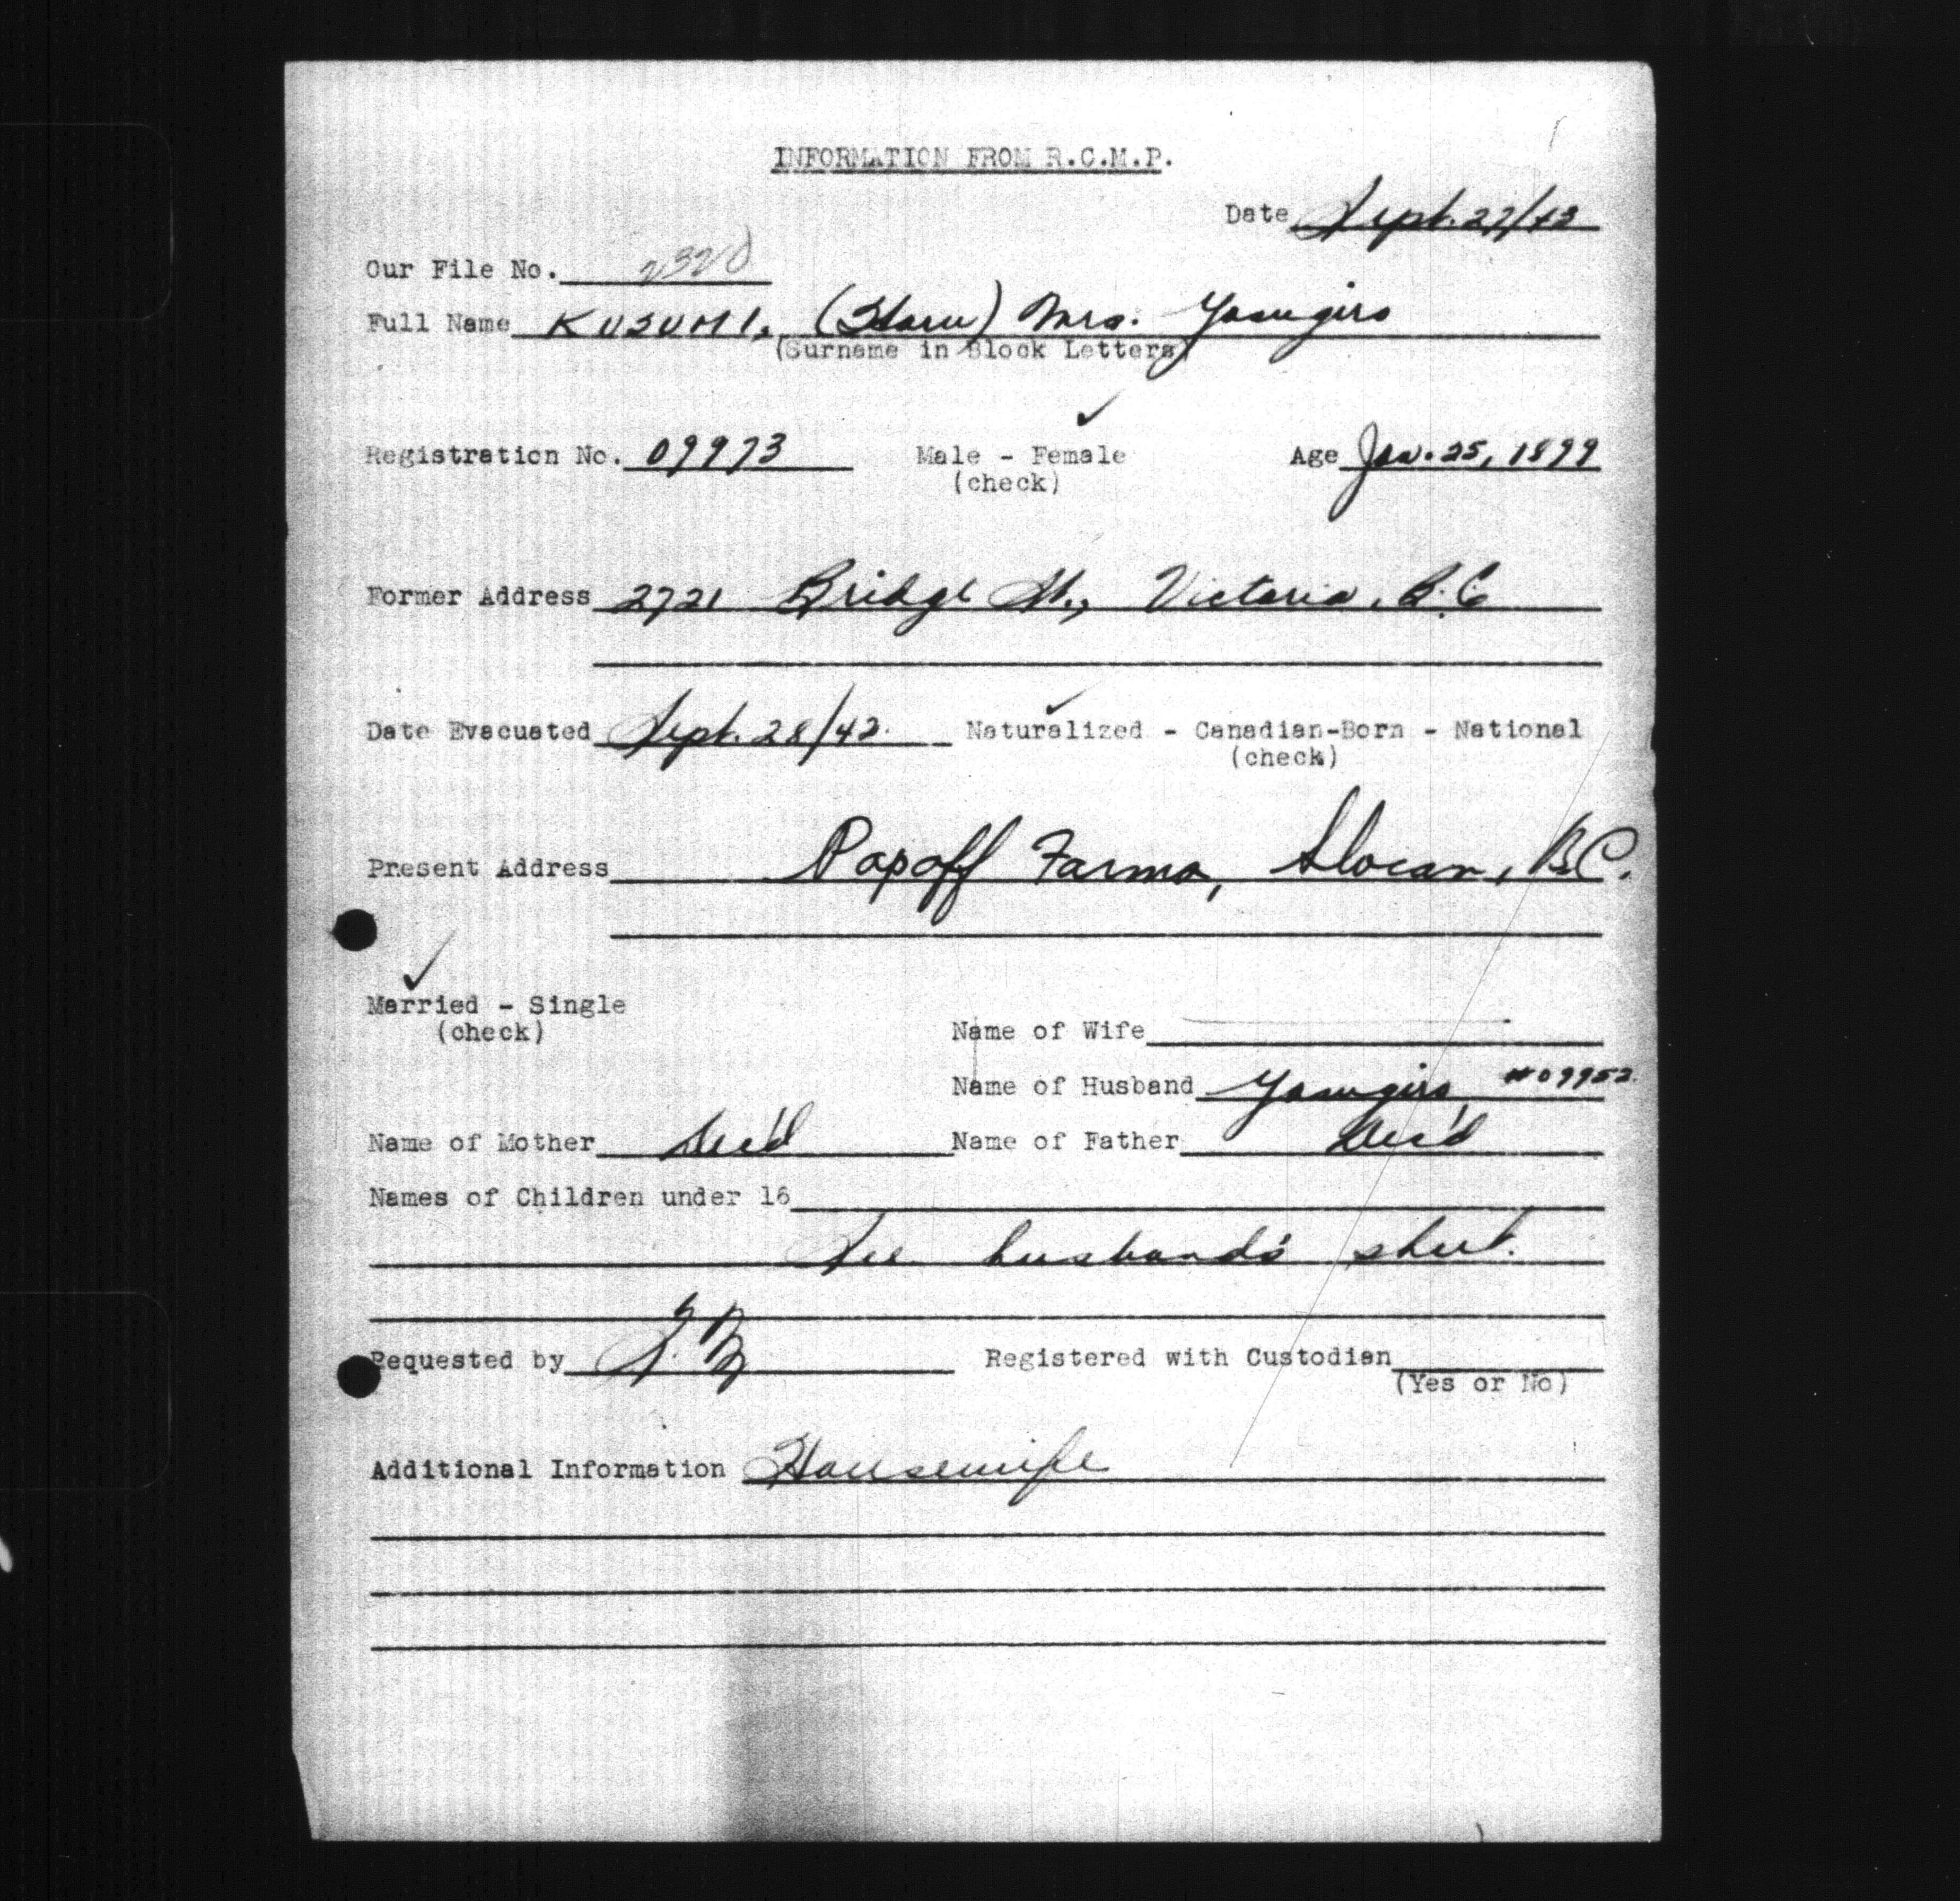 INFORMATION FROM R.C.M.P.
Date Sept. 27/43
Our File No. 2320
Full Name KUSUMI, (Haru) Mrs. Yasugiro
(Surname in Block Letters)
Registration No. 09973 Male - Female ✓ Age Jan. 25, 1899
(check)
Former Address 2721 Bridge St., Victoria, B.C
Date Evacuated Sept. 28/42. Naturalized ✓ - Canadian-Born - National
(check)
Present Address Popoff Farm, Slocan, B.C.
✓
Married - Single
(check)
Name of Wife
Name of Husband Yasugiro #09952
Name of Mother Dec'd Name of Father Dec'd
Names of Children under 16
See husband's sheet.
Requested by Registered with Custodian
(Yes or No)
Additional Information Housewife